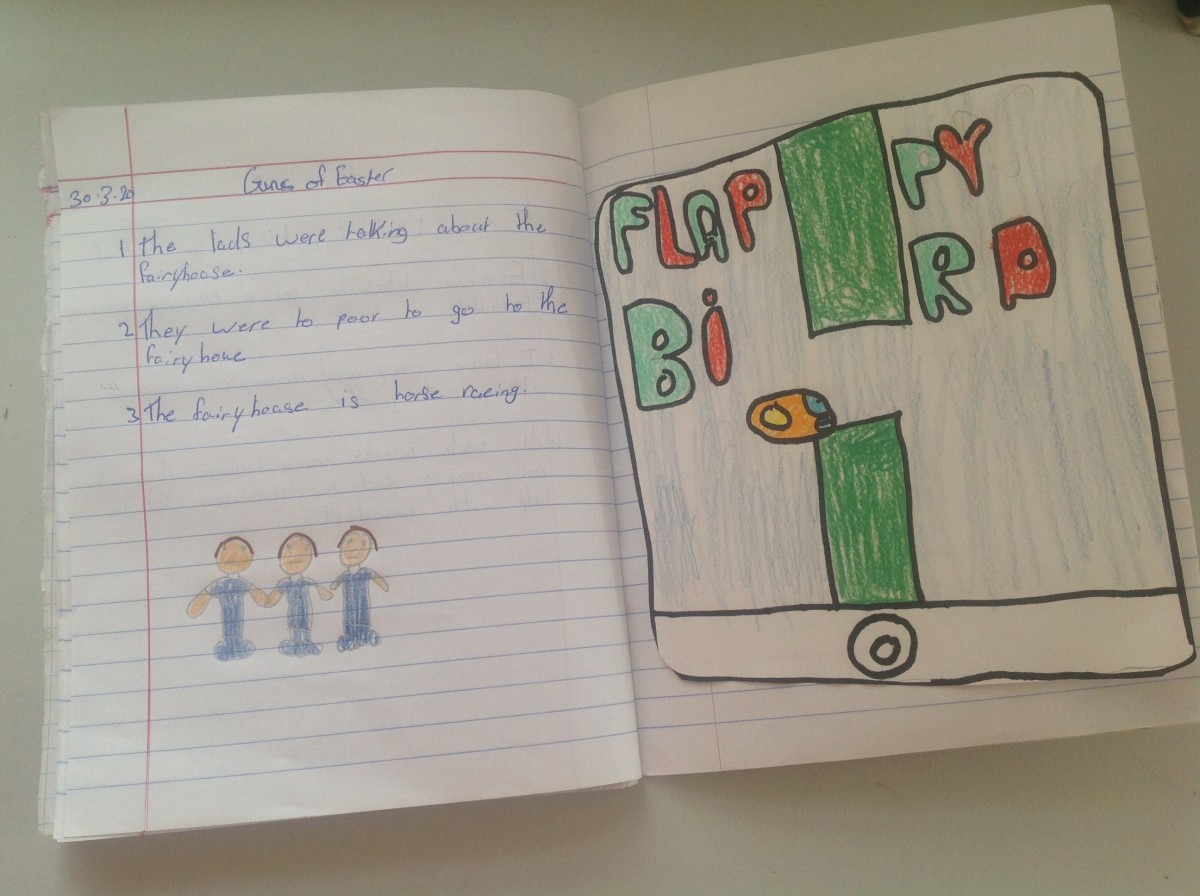 30.3.20
Guns of Easter
1 The lads were talking about the
fairyhouse.
2 They were to poor to go to the
fairyhoue
3 The fairyhouse is horse racing.
FLAP PY
BI RD